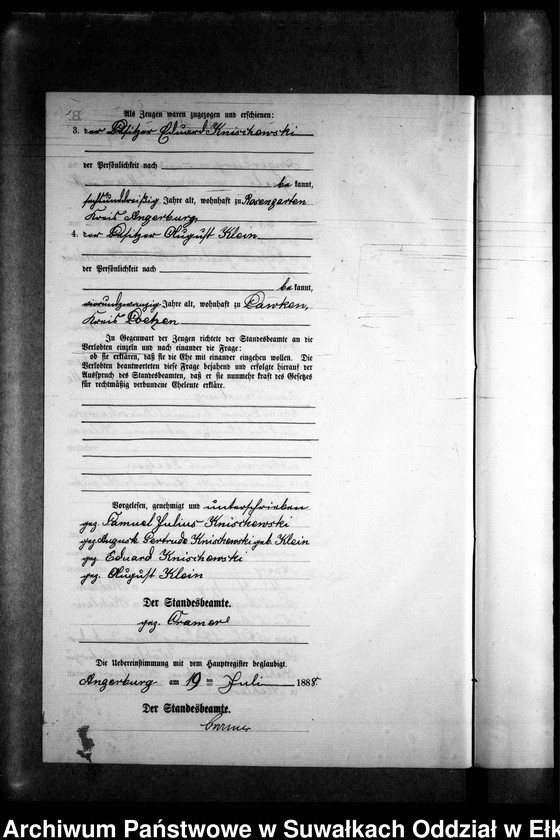 Als Zeugen waren zugezogen und erschienen:
3. der Besitzer Eduard Knischewski
der Persönlichkeit nach
be kannt,
sechsunddreißig Jahre alt, wohnhaft zu Rosengarten
Kreis Angerburg,
4. der Besitzer August Klein
der Persönlichkeit nach
be kannt,
vierundzwanzig Jahre alt, wohnhaft zu
Kreis Loetzen
In Gegenwart der Zeugen richtete der Standesbeamte an die
Verlobten einzeln und nach einander die Frage:
ob sie erklären, daß sie die Ehe mit einander eingehen wollen. Die
Verlobten beantworteten diese Frage bejahend und erfolgte hierauf der
Ausspruch des Standesbeamten, daß er sie nunmehr kraft des Gesetzes
für rechtmäßig verbundene Eheleute erkläre.
Vorgelesen, genehmigt und unterschrieben
gez. Samuel Julius Knischewski
gez. Auguste Gertrude Knischewski geb. Klein
gez. Eduard Knischewski
gez. August Klein
Der Standesbeamte.
gez. Cramer
Die Uebereinstimmung mit dem Hauptregister beglaubigt.
Angerburg am 19 ten Juli 188
Der Standesbeamte.
Cramer
Archiwum Państwowe w Suwałkach Oddział w Ełk